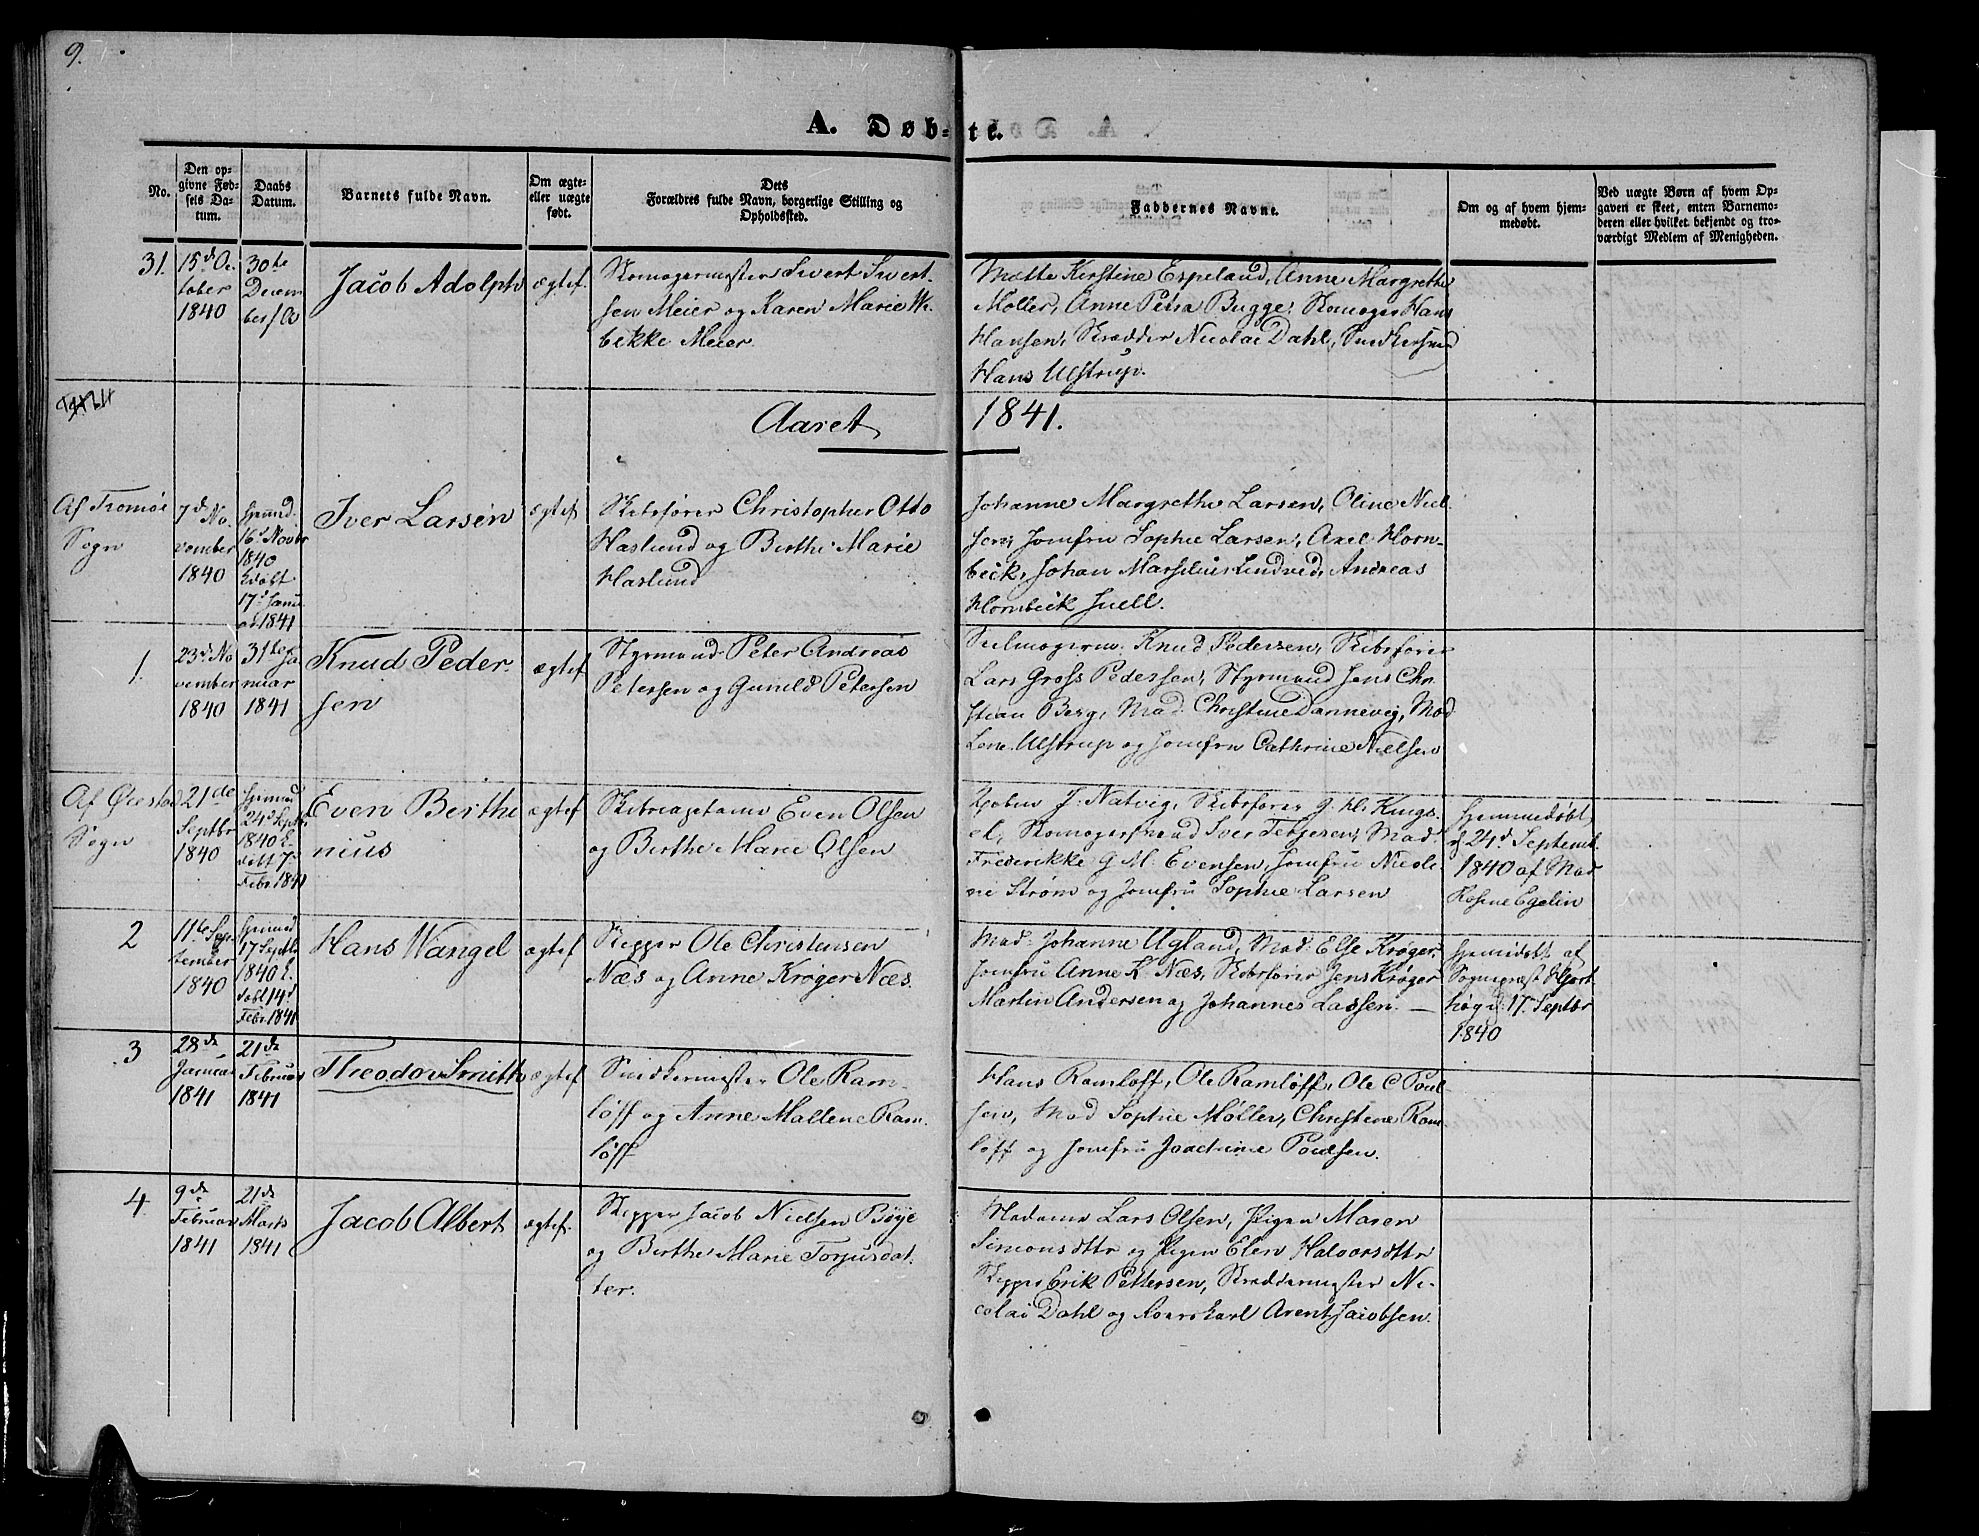 9.
A. Døbte.
No.
Den opgivne Fødsels Datum.
Daabs Datum.
Barnets fulde Navn.
Om ægte- eller uægte født.
Dets Forældres fulde Navn, borgerlige Stilling og Opholdssted.
Faddernes Navne.
Om og af hvem hjemmedøbt.
Ved uægte Børn af hvem Opgaven er skeet, enten Barnemoderen eller hvilket bekjendt og troværdigt Medlem af Menigheden.
31.
15d Oc
tober
1840
30te
Decem
ber
Jacob Adolph
ægtef.
Skomagermester Sivert Sivert
sen Meier og Karen Marie Wi
bekke Meier.
Mette Kirstine Espeland, Anne Margrethe
Møller, Anne Petra Bugge, Skomager Hans
Hansen, Skrædder Nicolai Dahl, Snedkersvend
Hans Ulstrup.
Aaret 1841.
Af Tromøe
Sogn
7d No
vember
1840
Hjemmed.
16d Novbr
1840
17d Janu
ar 1841
Iver Larsen
ægtef
Skibsfører Christopher Otto
Haslund og Birthe Marie
Haslund
Johanne Margrethe Larsen, Oline Niel
sen, Jomfru Sophie Larsen, Axel Horn-
beck, Johan Marsilius Lindved, Andreas
Hornbeck Juell.
1.
23d No
vember
1840
31te Ja
nuar
1841
Knud Peder
sen
ægtef
Styrmand Peter Andreas
Petersen og Gunild Petersen
Seilmagerm. Knud Pedersen, Skibsfører
Lars Gross Pedersen, Styrmand Jens Chri
stian Berg, Mad. Christine Dannevig, Mad
Lene Ulstrup og Jomfru Cathrine Nielsen
Af Øiestad
Sogn
21de
Septbr
1840
Hjemmed
24d Septbr.
1840
døbt 7d
Febr. 1841
Even Berthi
nius
ægtef
Skibscapetain Even Olsen
og Birthe Marie Olsen
J. Natvig, Skibsfører
Skomagersvend Iver Terjesen, Mad
Frederikke G. M. Evensen, Jomfru Nicoli
ne Strøm og Jomfru Sophie Larsen
Hjemmedøbt
d 24d Septemb.
1840 af Mad
2
11te Sep
tember
1840
Hjemmed
17 Septbr
1840
døbt 14d
Febr. 1841
Hans Wangel
ægtef
Skipper Ole Christensen
Næs og Anne Krøger Næs.
Mad. Johanne Ugland, Mad. Else Krøger,
Jomfru Anne K. Næs, Skibsfører Jens Krøger
Martin Andersen og Johannes Lassen. —
Hjemdøbt af
Sognepræst Hjort
høg d. 17. Septbr
1840
3
28de
Januar
1841
21de
Februar
1841
Theodor Smith
ægtef
Snedkermester Ole Ram
løff og Anne Mallene Ram
løff
Hans Ramløff, Ole Ramløff, Ole C Poul
sen, Mad Sophie Møller, Christine Ram
løff og Jomfru Joachime Poulsen.
4.
9de
Februar
1841
21de
Marts
1841
Jacob Albert
ægtef.
Skipper Jacob Nielsen Bøye
og Birthe Marie Torjusdat
ter.
Madame Lars Olsen, Pigen Maren
Simonsdttr og Pigen Elen Halvorsdttr
Skipper Erik Pettersen, Skræddermester Ni-
colai Dahl og Arent Jacobsen.